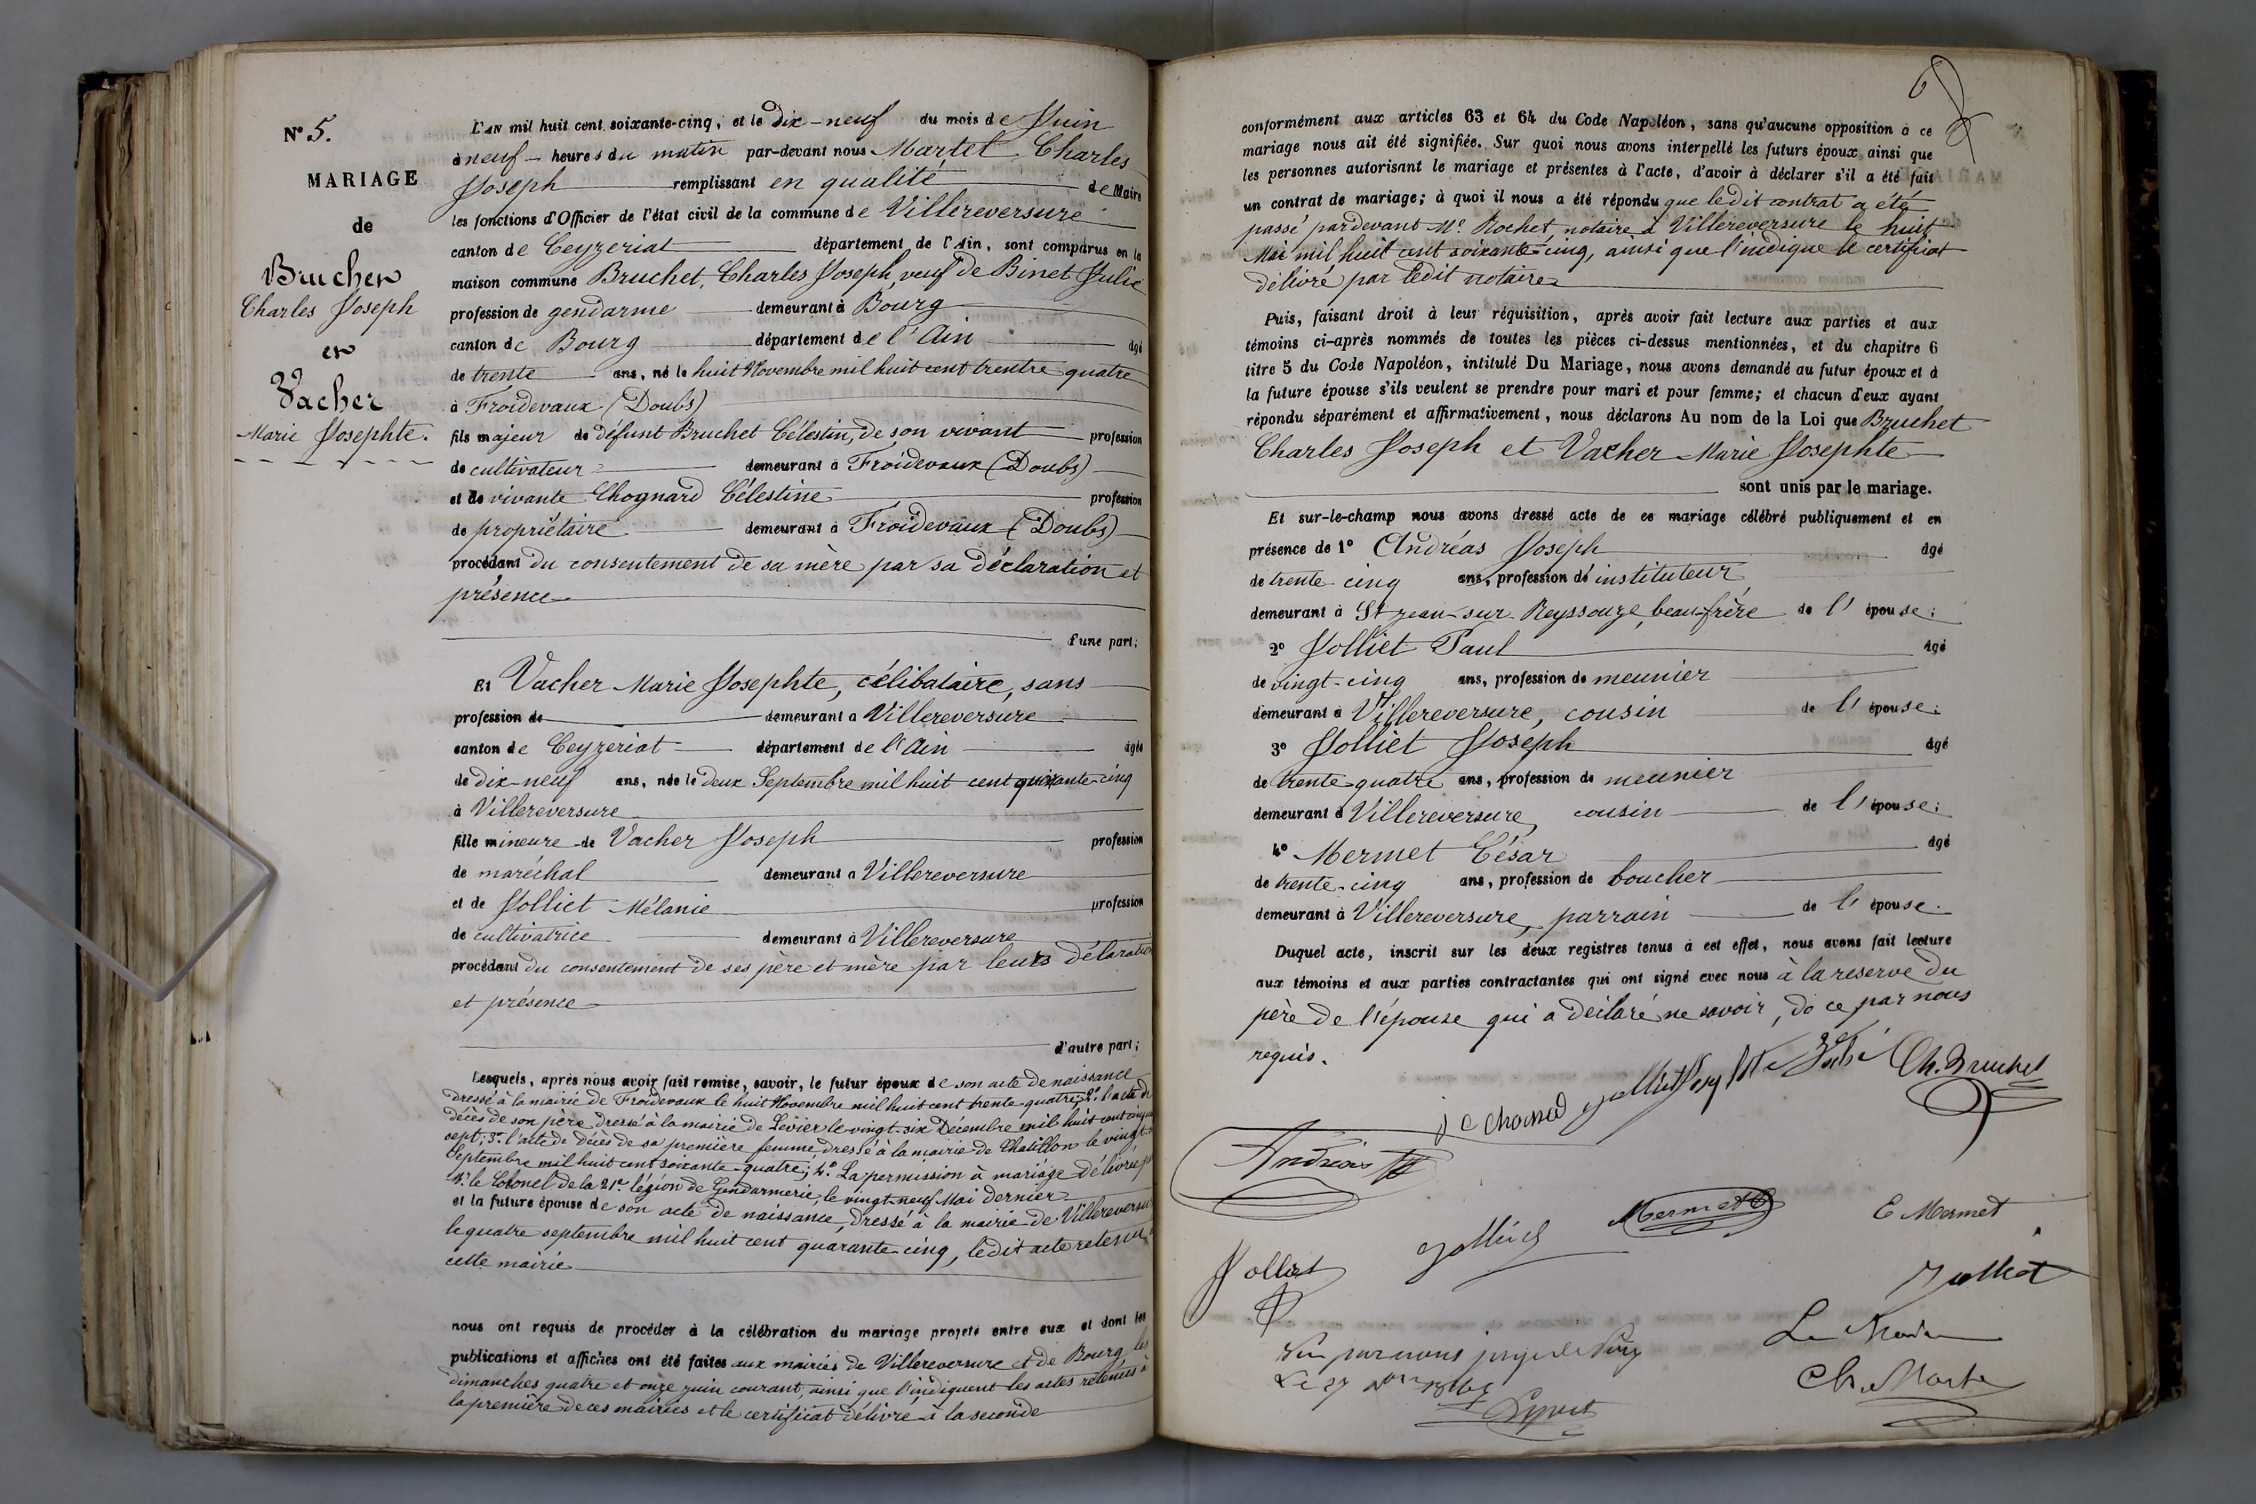 N° 5.
MARIAGE
de
Bruchet
Charles Joseph
et
Vacher
Marie Josephte.
L'AN mil huit cent soixante-cinq, et le dix-neuf du mois de Juin
à neuf heures du matin par-devant nous Martet Charles
Joseph remplissant en qualité de Maire
les fonctions d'Officier de l'état civil de la commune de Villereversure
canton de Ceyzeriat département de l'Ain, sont comparus en la
maison commune Bruchet, Charles Joseph, veuf de Binet Julie
profession de gendarme demeurant à Bourg
canton de Bourg département de l'Ain âgé
de trente ans, né le huit Novembre mil huit cent trentre quatre
à Froidevaux (Doubs)
fils majeur de défunt Bruchet Célestin, de son vivant profession
de cultivateur demeurant à Froidevaux (Doubs)
et de vivante Chognard Célestine profession
de propriétaire demeurant à Froidevaux (Doubs)
procédant du consentement de sa mère par sa déclaration et
présence
d'une part;
Et Vacher Marie Josephte, célibataire, sans
profession de demeurant à Villereversure
canton de Ceyzeriat département de l'Ain âgée
de dix-neuf ans, née le deux Septembre mil huit cent quarante-cinq
à Villereversure
fille mineure de Vacher Joseph profession
de maréchal demeurant à Villereversure
et de Jolliet Mélanie profession
de cultivatrice demeurant à Villereversure
procédant du consentement de ses père et mère par leurs déclaration
et présence
d'autre part;
Lesquels, après nous avoir fait remise, savoir, le futur époux de son acte de naissance
dressé à la mairie de Froidevaux le huit Novembre mil huit cent trente-quatre; 2° l'acte de
décès de son père dressé à la mairie de Levier le vingt-six Décembre mil huit cent cinquante
sept; 3° l'acte de décès de sa première femme dressé à la mairie de Chatillon le vingt
Septembre mil huit cent soixante-quatre; 4° La permission à mariage délivrée par
Mr le Colonel de la 21e légion de Gendarmerie, le vingt-neuf Mai dernier
et la future épouse de son acte de naissance, dressé à la mairie de Villereversure
le quatre septembre mil huit cent quarante-cinq, ledit acte retenu à
cette mairie
nous ont requis de procéder à la célébration du mariage projeté entre eux et dont les
publications et affiches ont été faites aux mairies de Villereversure et de Bourg les
dimanches quatre et onze juin courant, ainsi que l'indiquent les actes retenus à
la première de ces mairies et le certificat délivré à la seconde
6
conformément aux articles 63 et 64 du Code Napoléon, sans qu'aucune opposition à ce
mariage nous ait été signifiée. Sur quoi nous avons interpellé les futurs époux, ainsi que
les personnes autorisant le mariage et présentes à l'acte, d'avoir à déclarer s'il a été fait
un contrat de mariage; à quoi il nous a été répondu que ledit contrat a été
passé pardevant Me Rochet, notaire à Villereversure le huit
Mai mil huit cent soixante-cinq, ainsi que l'indique le certificat
délivré par ledit notaire
Puis, faisant droit à leur réquisition, après avoir fait lecture aux parties et aux
témoins ci-après nommés de toutes les pièces ci-dessus mentionnées, et du chapitre 6
titre 5 du Code Napoléon, intitulé Du Mariage, nous avons demandé au futur époux et à
la future épouse s'ils veulent se prendre pour mari et pour femme; et chacun d'eux ayant
répondu séparément et affirmativement, nous déclarons Au nom de la Loi que Bruchet
Charles Joseph et Vacher Marie Josephte
sont unis par le mariage.
Et sur-le-champ nous avons dressé acte de ce mariage célébré publiquement et en
présence de 1° Andréas Joseph âgé
de trente cinq ans, profession de instituteur
demeurant à St jean-sur-Reyssouze, beau-frère de l'épouse;
2° Jolliet Paul âgé
de vingt-cinq ans, profession de meunier
demeurant à Villereversure, cousin de l'épouse;
3° Jolliet Joseph âgé
de trente quatre ans, profession de meunier
demeurant à Villereversure, cousin de l'épouse;
4° Mermet César âgé
de trente-cinq ans, profession de boucher
demeurant à Villereversure, parrain de l'épouse.
Duquel acte, inscrit sur les deux registres tenus à cet effet, nous avons fait lecture
aux témoins et aux parties contractantes qui ont signé avec nous à la reserve du
père de l'épouse qui a déclaré ne savoir, de ce par nous
requis.
Ch. Bruchet
Andréas
Mermet E Mermet
Jolliet
Jolliet
Le Maire
Vu par nous juge de Paix
Ch. Martet